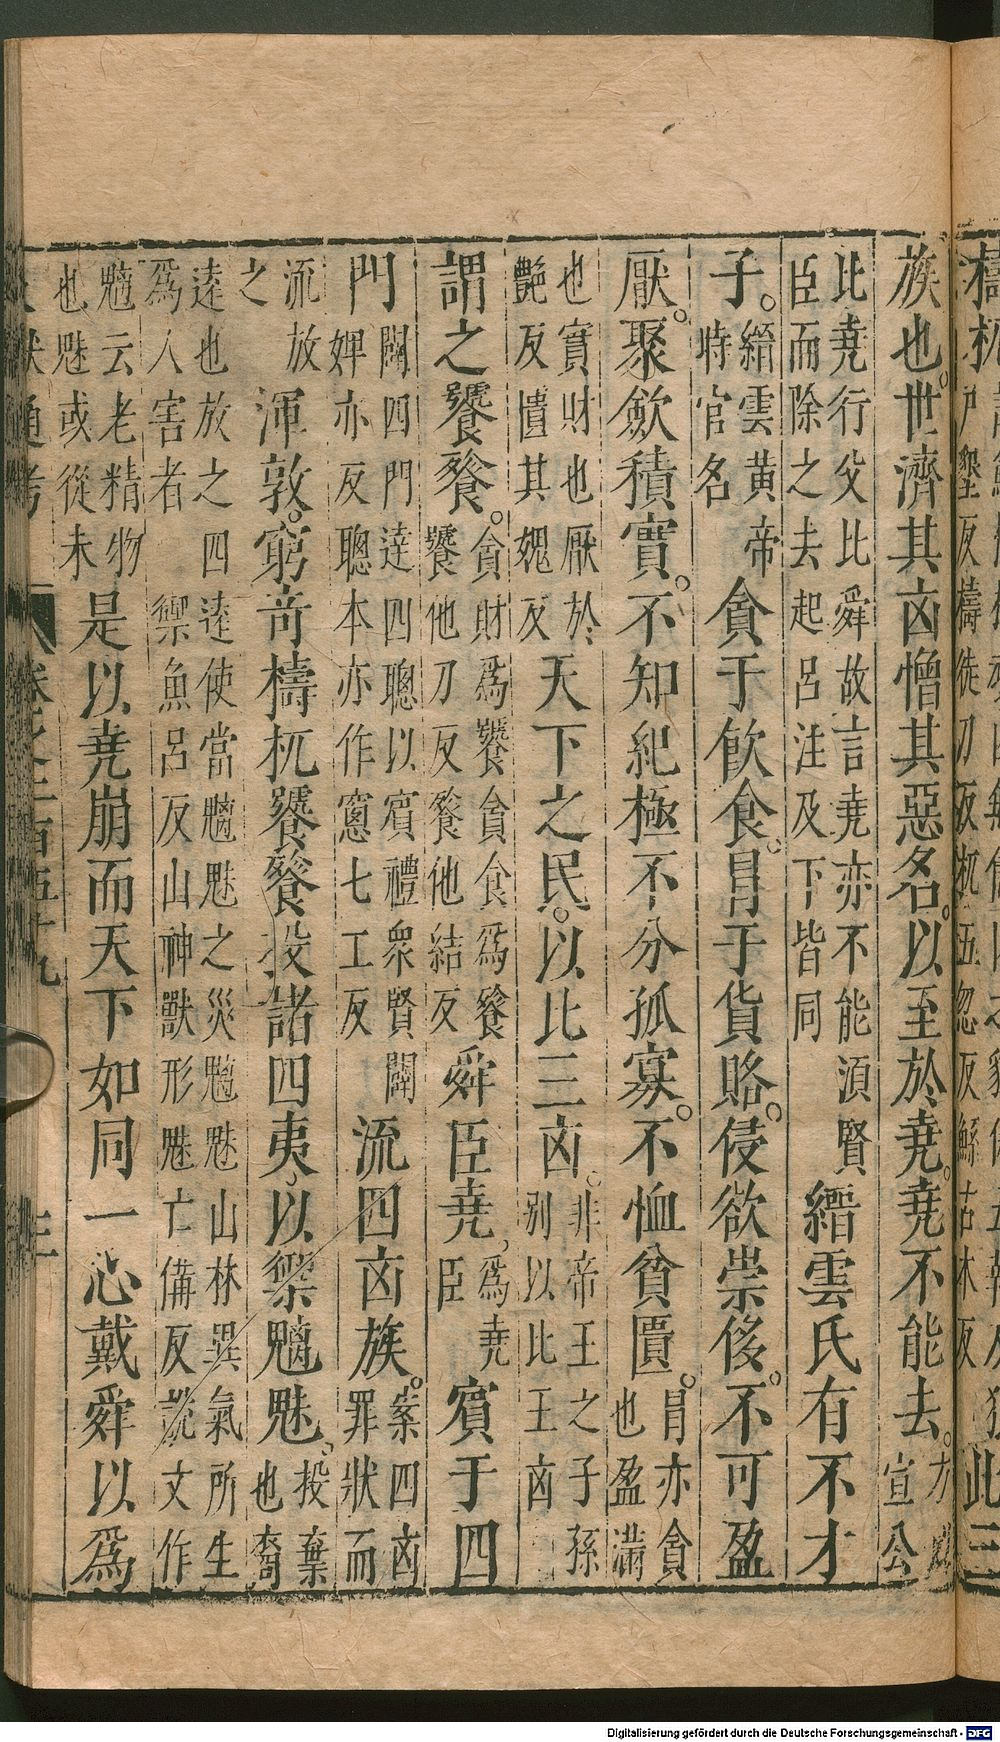 檮杌 此三
族也。世濟其凶憎其惡名。以至於堯。堯不能去。方宣公
比堯行父比舜故言堯亦不能湏賢臣而除之去起呂注及下皆同縉雲氏有不才
子。縉雲黃帝時官名貪于飲食。冒于貨賂。侵欲崇侈。不可盈
厭。聚斂積實。不知紀極不分孤寡。不恤貧匱。冒亦貪也盈滿
也實財也厭於艷反匱其媿反天下之民。以比三凶。非帝王之子孫別以比王凶
謂之饕餮。貪財爲饕貪食爲餮饕他刀反餮他結反舜臣堯、爲堯臣賓于四
門闢四門達四聰以賓禮衆賢闢婢亦反聰本亦作窻七工反流四凶族。案四凶罪狀而
流放之渾敦。窮奇檮杌饕餮投諸四夷、以禦魑魅、投棄也裔
逺也放之四逺使當魑魅之災魑魅山林異氣所生爲人害者禦魚呂反山神獸形魅亡備反説文作
魑云老精物也魅或從未是以堯崩而天下如同一心戴舜以爲
獻通考 卷之 百五十九 三
Digitalisierung gefördert durch die Deutsche Forschungsgemeinschaft - DFG